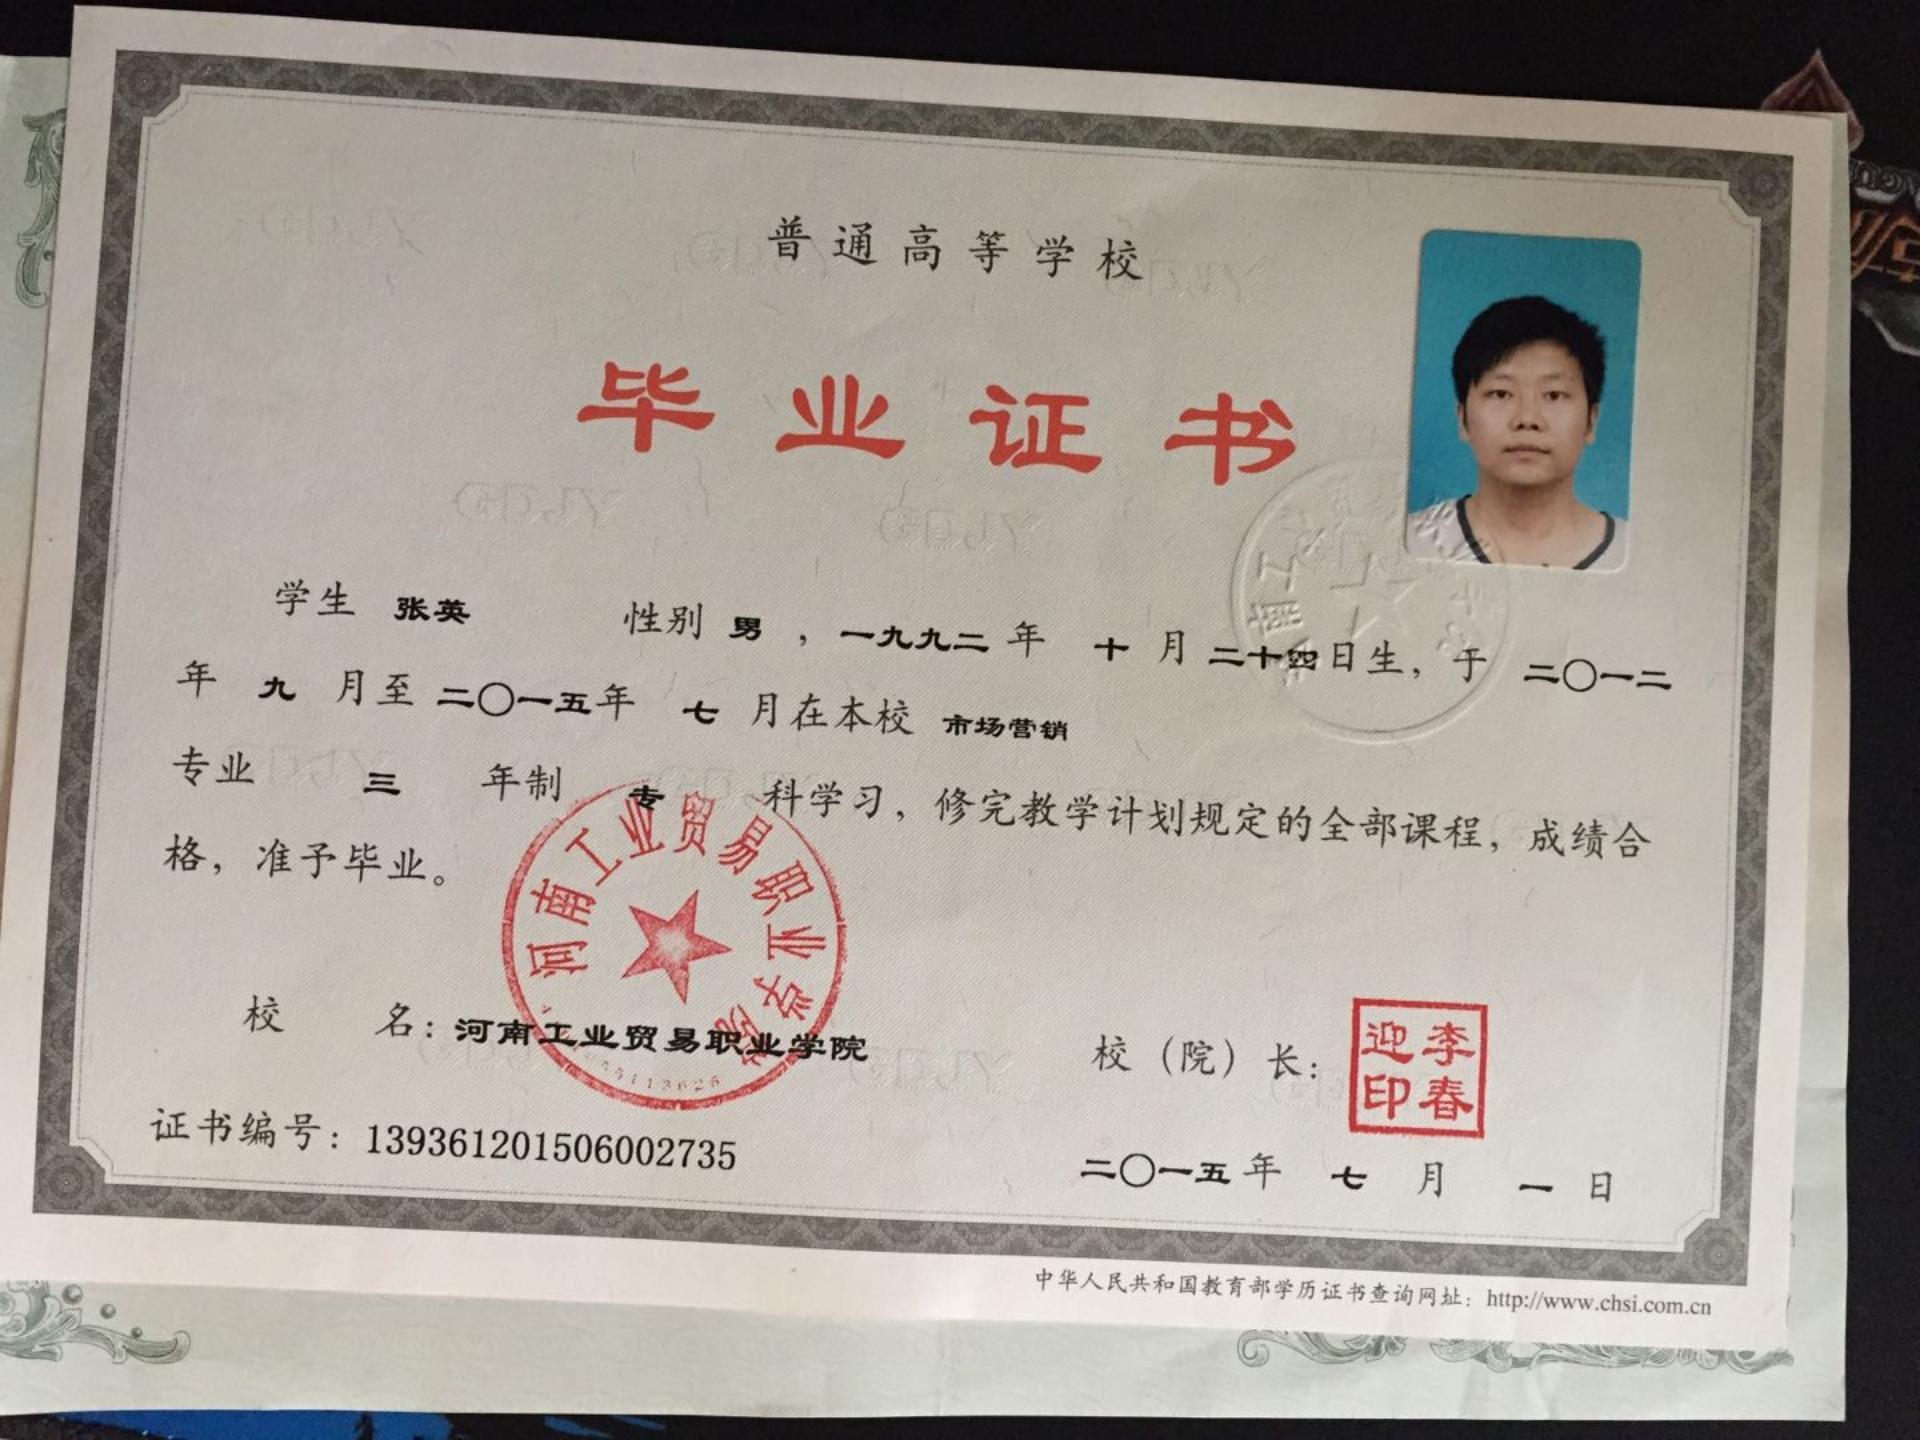 普通高等学校
毕业证书
学生 张英 性别 男 ，一九九二 年 十 月 二十四日生，于 二〇一二
年 九 月至 二〇一五年 七 月在本校 市场营销
专业 三 年制 专 科学习，修完教学计划规定的全部课程，成绩合
格，准予毕业。
河南工业贸易职业学院
校 名：河南工业贸易职业学院
校（院）长：
李春迎印
证书编号：139361201506002735
二〇一五年 七 月 一 日
中华人民共和国教育部学历证书查询网址：http://www.chsi.com.cn